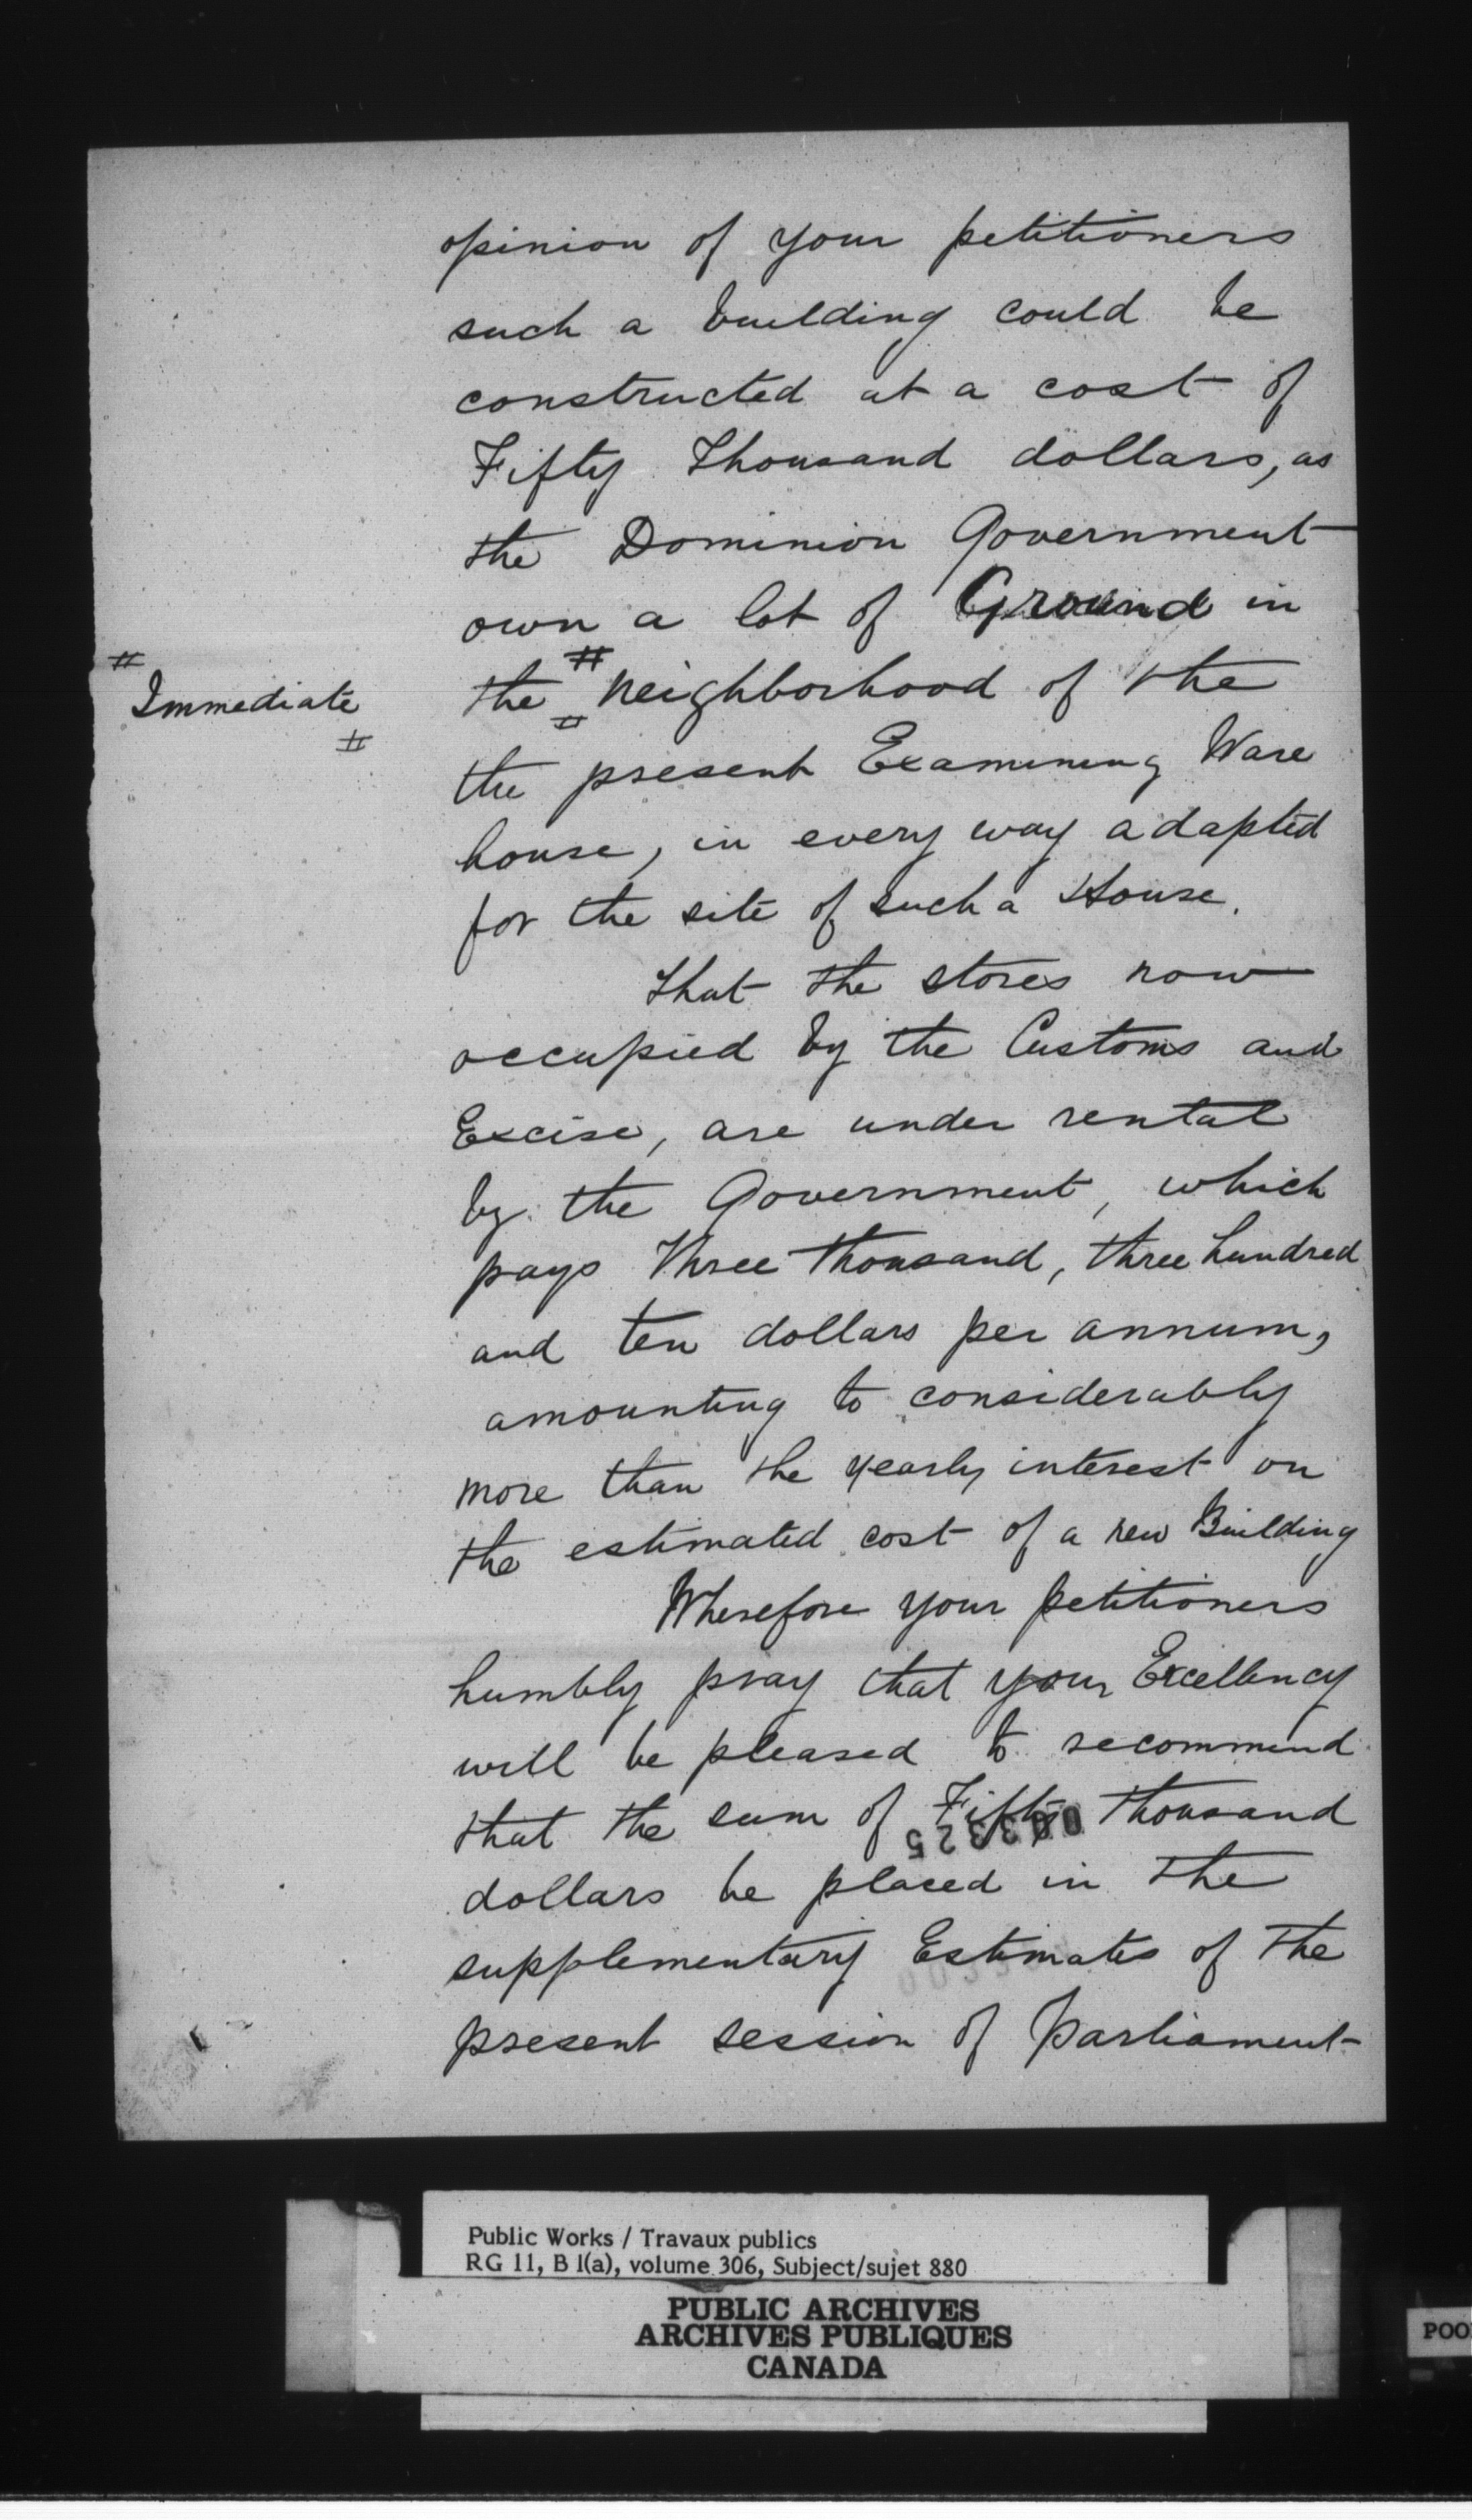 opinion of your petitioners
such a building could be
constructed at a cost of
Fifty Thousand dollars, as
the Dominion Government
own a lot of Ground in
# Immediate #
the # neighborhood of the
the present Examining Ware
house, in every way adapted
for the site of such a House.
That the stores now
occupied by the Customs and
Excise, are under rental
by the Government, which
pays Three thousand, three hundred
and ten dollars per annum,
amounting to considerably
more than the yearly interest on
the estimated cost of a new Building
Wherefore your petitioners
humbly pray that your Excellency
will be pleased to recommend
that the sum of Fifty thousand
dollars be placed in the
supplementary Estimates of the
present session of Parliament
Public Works / Travaux publics
RG 11, B 1(a), volume 306, Subject/sujet 880
PUBLIC ARCHIVES
ARCHIVES PUBLIQUES
CANADA
POO